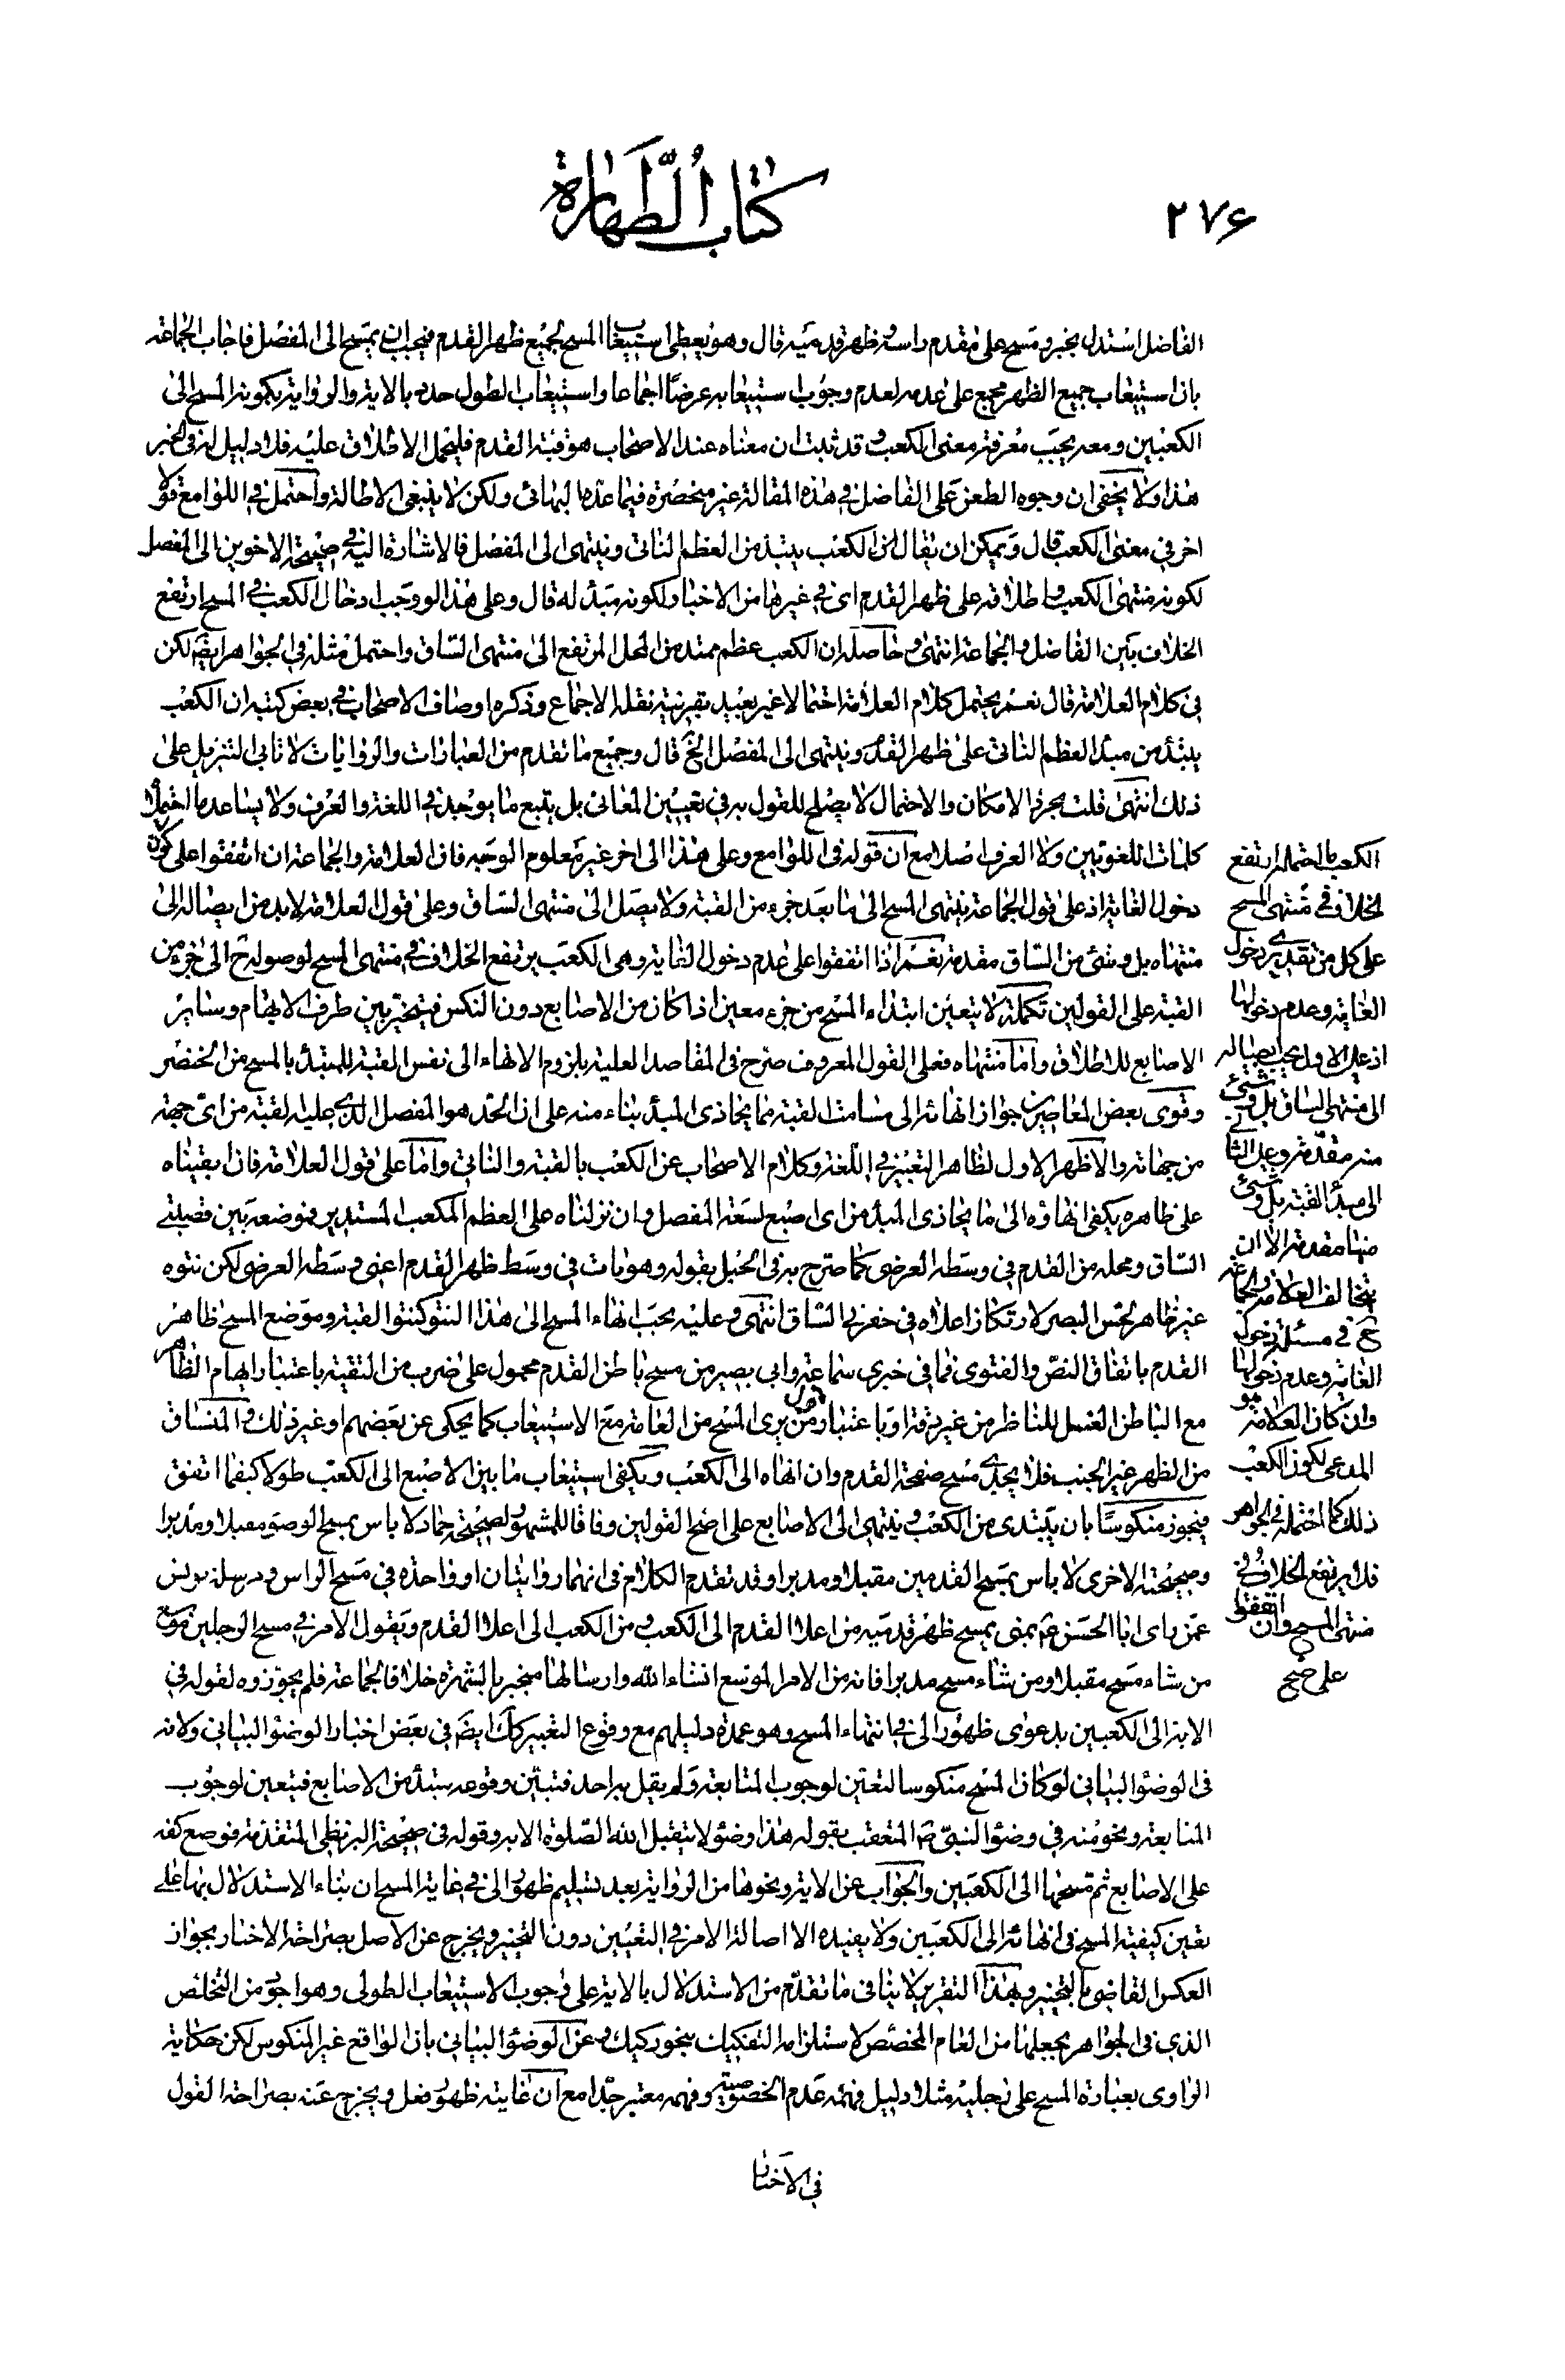 كتاب الطهارة
٢٧۶
الفاضل استدل بخبر ومسح على مقدم راسه وظهر قدميه قال وهو يعطى استيعاب المسح لجميع ظهر القدم فيجب ان يمسح الى المفصل فاجاب الجماعة
بان استيعاب جميع الظهر مجمع على عدمه لعدم وجوب استيعابه عرضا اجماعا واستيعاب الطول حده بالاية والرواية بكونه المسح الى
الكعبين ومعه يجب معرفة معنى الكعب وقد ثبت ان معناه عند الاصحاب هو قبة القدم فليحمل الاطلاق عليه فلا دليل له فى الخبر
هذا ولا يخفى ان وجوه الطعن على الفاضل في هذه المقالة غير منحصرة فيما عده البهائى ولكن لا ينبغى الاطالة واحتمل في اللوامع قولا
اخر في معنى الكعب قال ويمكن ان يقال ان الكعب يبتدء من العظم الناتى وينتهى الى المفصل فالاشارة اليه في صحيحة الاخوين الى المفصل
لكونه منتهى الكعب واطلاقه على ظهر القدم اى في غيرها من الاخبار لكونه مبدء له قال وعلى هذا لو وجب ادخال الكعب في المسح ارتفع
الخلاف بين الفاضل والجماعة انتهى وحاصله ان الكعب عظم ممتد من المحل المرتفع الى منتهى الساق واحتمل مثله في الجواهر ايضا لكن
في كلام العلامة قال نعم يحتمل كلام العلامة احتمالا غير بعيد بقرينة نقله الاجماع وذكره اوصاف الاصحاب في بعض كتبه ان الكعب
يبتدء من مبدء العظم الناتى على ظهر القدم وينتهى الى المفصل الخ قال وجميع ما تقدم من العبارات والروايات لا تابى التنزيل على
ذلك انتهى قلت مجرد الامكان والاحتمال لا يصلح للقول به في تعيين المعانى بل يتبع ما يوجد في اللغة والعرف ولا يساعد ما احتملا
كلمات اللغويين ولا العرف اصلا مع ان قوله في اللوامع وعلى هذا الى اخره غير معلوم الوجه فان العلامة والجماعة ان اتفقوا على كون
دخول الغاية اذ على قول الجماعة ينتهى المسح الى ما بعد جزء من القبة ولا يصل الى منتهى الساق وعلى قول العلامة لابد من ايصاله الى
منتهاه بل وشئ من الساق مقدمة نعم اذا اتفقوا على عدم دخول الغاية وهى الكعب يرتفع الخلاف في منتهى المسح لوصوله ح الى جزء من
القبة على القولين تكملة لا يتعين ابتداء المسح من جزء معين اذا كان من الاصابع دون النكس فيتخير بين طرف الابهام وساير
الاصابع للاطلاق واما منتهاه فعلى القول المعروف صرح في المقاصد العلية بلزوم الانهاء الى نفس القبة للمبتدء بالمسح من الخنصر
وقوى بعض المعاصرين جواز انهائه الى مسامت القبة مما يحاذى المبدء بناء منه على ان الحد هو المفصل الذى عليه القبة من اى جهة
من جهاته والاظهر الاول لظاهر التعبير في اللغة وكلام الاصحاب عن الكعب بالقبة والناتى واما على قول العلامة فان ابقيناه
على ظاهره يكفى انهاؤه الى ما يحاذى المبدء من اى اصبع لسعة المفصل وان نزلناه على العظم المكعب المستدير فموضعه بين قصبتى
الساق ومحله من القدم في وسطه العرضى كما صرح به في الحبل بقوله وهو بات في وسط ظهر القدم اعنى وسطه العرضى لكن نتوه
غير ظاهر لحس البصر لارتكاز اعلاه في حفرتى الساق انتهى وعليه يجب انهاء المسح الى هذا النتو كنتو القبة وموضع المسح ظاهر
القدم باتفاق النص والفتوى فما في خبرى سماعة وابى بصير من مسح باطن القدم محمول على ضرب من التقية باعتبار ايهام الظاهر
مع الباطن الغسل للناظر من غير دقة او باعتبار قول من يرى المسح من العامة مع الاستيعاب كما يحكى عن بعضهم او غير ذلك والمنساق
من الظهر غير الجنب فلا يجدى مسح صفحة القدم وان انهاه الى الكعب ويكفى استيعاب ما بين الاصبع الى الكعب طولا كيفما اتفق
فيجوز منكوسا بان يبتدى من الكعب وينتهى الى الاصابع على اصح القولين وفاقا للمشهور لصحيحة حماد لا باس بمسح الوضوء مقبلا ومدبرا
وصحيحته الاخرى لا باس بمسح القدمين مقبلا ومدبرا وقد تقدم الكلام في انهما روايتان او واحدة في مسح الراس ومرسلة يونس
عمن راى ابا الحسن ع بمنى يمسح ظهر قدميه من اعلا القدم الى الكعب ومن الكعب الى اعلا القدم ويقول الامر في مسح الرجلين موسع
من شاء مسح مقبلا ومن شاء مسح مدبرا فانه من الامر الموسع انشاء الله وارسالها منجبر بالشهرة خلافا لجماعة فلم يجوزوه لقوله في
الاية الى الكعبين بدعوى ظهور الى في انتهاء المسح وهو عمدة دليلهم مع وقوع التعبير كك ايضا في بعض اخبار الوضوء البيانى ولانه
في الوضوء البيانى لو كان المسح منكوسا لتعين لوجوب المتابعة ولم يقل به احد فتبين وقوعه مبتدء من الاصابع فيتعين لوجوب
المتابعة ونحو منه في وضوء النبى ص المتعقب بقوله هذا وضوء لا يتقبل الله الصلوة الا به وقوله في صحيحة البزنطى المتقدمة فوضع كفه
على الاصابع ثم مسحها الى الكعبين والجواب عن الاية ونحوها من الرواية بعد تسليم ظهور الى في غاية المسح ان بناء الاستدلال بها على
تعين كيفية المسح في انهائه الى الكعبين ولا يفيده الا اصالة الامر في التعيين دون التخيير ويخرج عن الاصل بصراحة الاخبار بجواز
العكس القاضى بالتخيير وبهذا التقرير لا ينافى ما تقدم من الاستدلال بالاية على وجوب الاستيعاب الطولى وهو اجود من التخلص
الذى في الجواهر بجعلها من العام المخصص لاستلزامه التفكيك بنحو ركيك وعن الوضوء البيانى بان الواقع غير المنكوس لكن حكاية
الراوى بعبارة المسح على رجليه مثلا دليل فهمه عدم الخصوصية وفهمه معتبر جدا مع ان غايته ظهور فعل ويخرج عنه بصراحة القول
في الاخبار
الكعب بالجملة ارتفع
الخلاف في منتهى المسح
على كل من تقديرى دخول
الغاية وعدم دخولها
اذ على الاول يجب ايصاله
الى منتهى الساق بل وشئ
منه مقدمة وعلى الثانى
الى مبدء القبة بل وشئ
منها مقدمة الا ان
يتخالف العلامة والجماعة
ح في مسئلة دخول
الغاية وعدم دخولها
وان كان العلامة هو
المدعى لكون الكعب
ذلك كما احتمله في الجواهر
فلا يرتفع الخلاف في
منتهى المسح وان اتفقوا
على صح